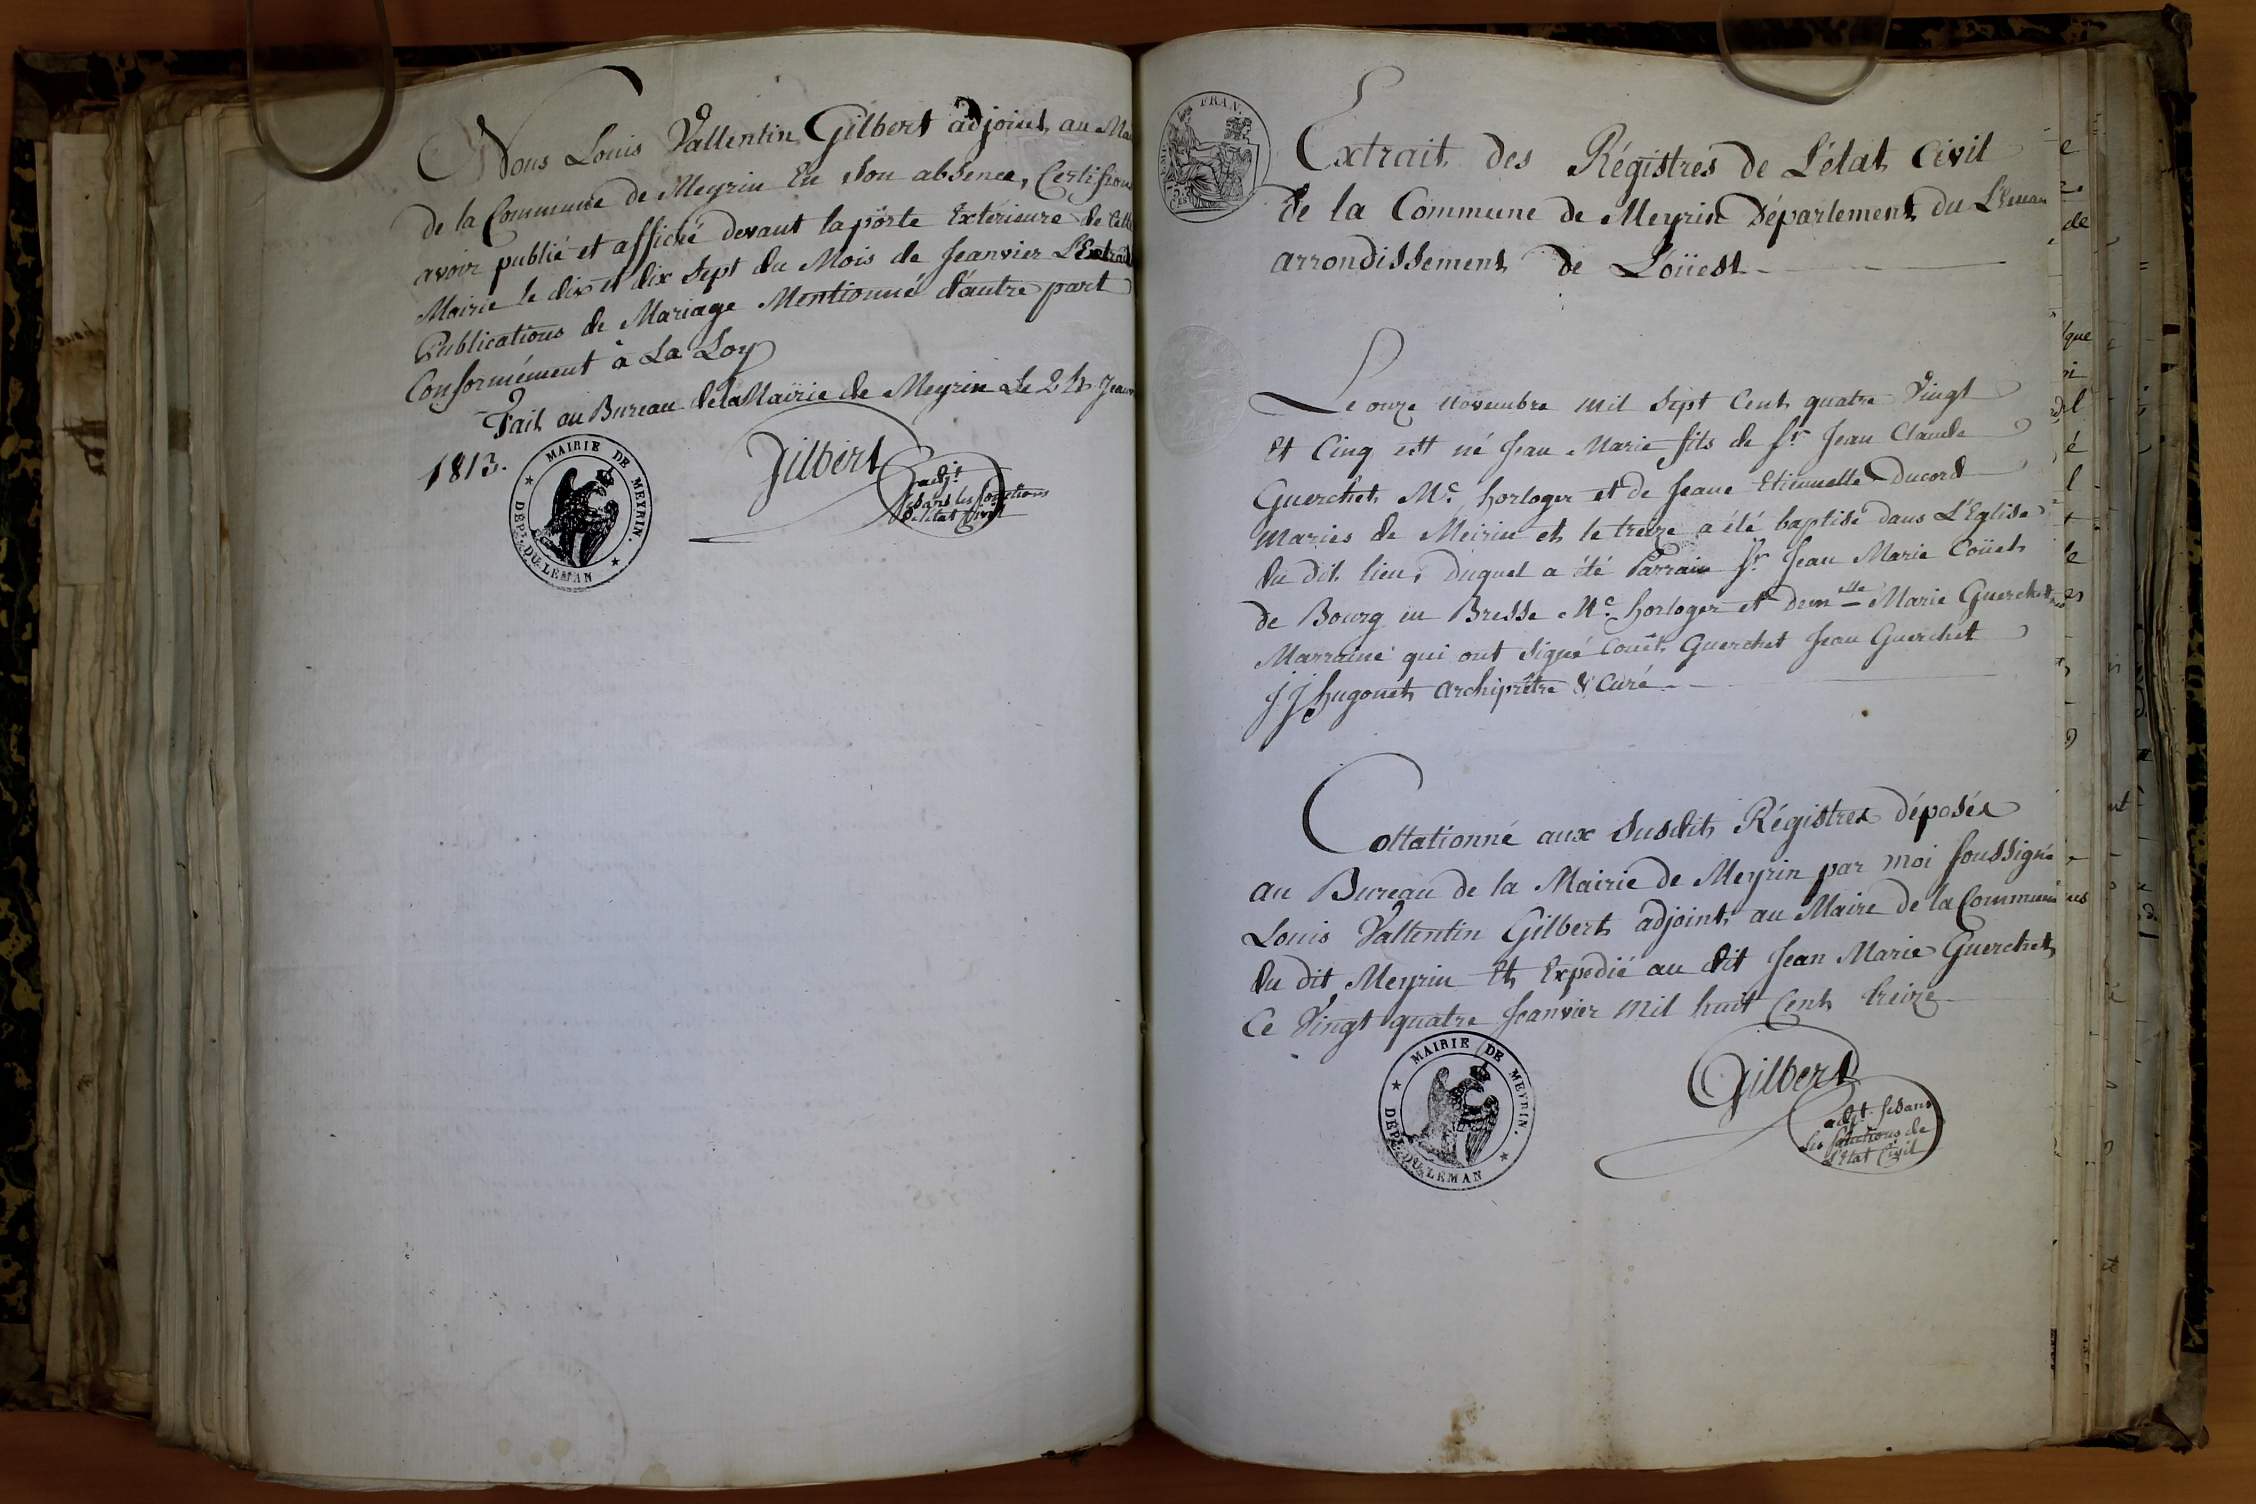 Nous Louis Vallentin Gilbert adjoint au
de la Commune de Meyrin En son absence, Certifions
avoir publié et affiché devant la porte Extérieure de Cette
Mairie le dix et dix sept du Mois de Jeanvier L'Extrait
Publications de Mariage Mentionné d'autre part
Conformément à La Loy
Fait au Bureau de la Mairie de Meyrin Le 24 Jeanv
1813.
MAIRIE DE MEYRIN.
DEPT. DU LEMAN
Gilbert
adjt
dans les fonctions
de l'état Civil
FRAN.
Extrait des Régistres de L'état Civil
de la Commune de Meyrin Département du Léman
arrondissement de L'oüest
Le onze Novembre mil sept Cent quatre Vingt
et Cinq est né Jean Marie fils de Sr. Jean Claude
Guerchet Me. horloger et de Jeane Etiennette Ducord
mariés de Meirin et le treize a été baptisé dans L'Eglise
du dit lieu, duquel a été Parrain Sr. Jean Marie Coüet
de Bourg en Bresse Me. horloger et Demelle Marie Guerchet
Marraine qui ont signé Couêt Guerchet Jean Guerchet
J J hugonet archiprêtre & Curé
Collationné aux susdit Régistres déposés
au Bureau de la Mairie de Meyrin par moi soussigné
Louis Vallentin Gilbert adjoint au Maire de la Commune
du dit Meyrin Et Expedié au dit Jean Marie Guerchet
Ce Vingt quatre Jeanvier mil huit Cent treize
MAIRIE DE MEYRIN.
DEPT. DU LEMAN
Gilbert
adjt
les fonctions de
l'état Civil